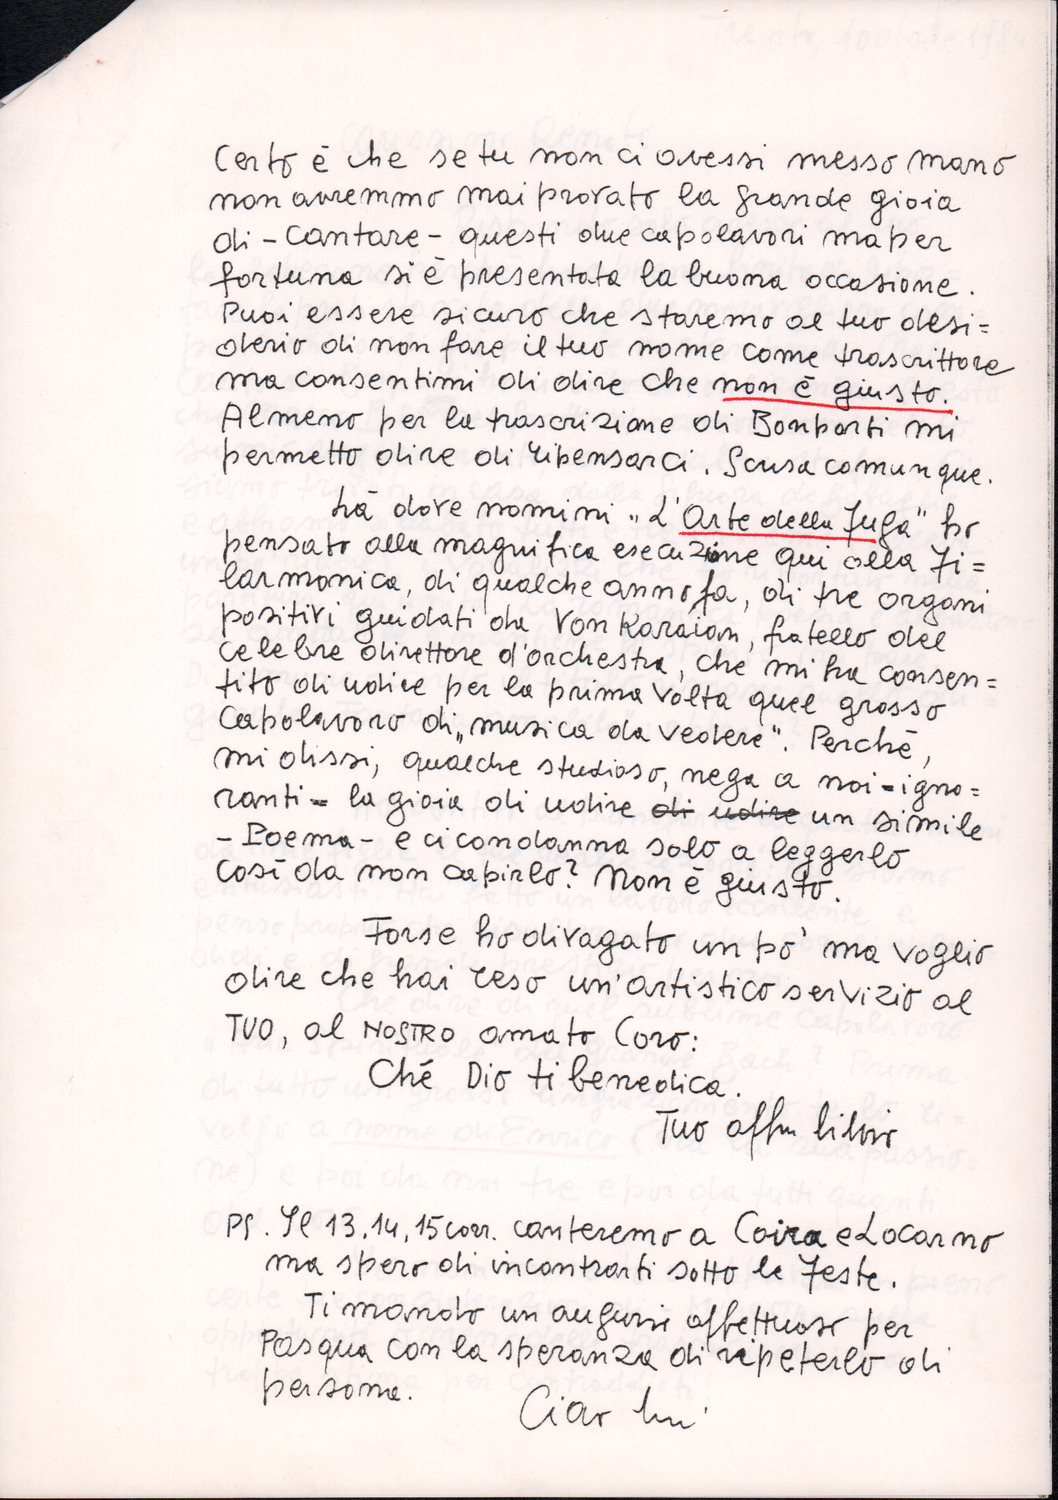 Certo è che se tu non ci avessi messo mano
non avremmo mai provato la grande gioia
di - cantare - questi due capolavori ma per
fortuna si è presentata la buona occasione.
Puoi essere sicuro che staremo al tuo desi=
derio di non fare il tuo nome come trascrittore
ma consentimi di dire che non è giusto.
Almeno per la trascrizione di Bonporti mi
permetto dire di ripensarci. Scusa comunque.
Là dove nomini „L'Arte della Fuga" ho
pensato alla magnifica esecuzione qui alla Fi=
larmonica, di qualche anno fa, di tre organi
positivi guidati da Von Karaian, fratello del
celebre direttore d'orchestra, che mi ha consen=
tito di udire per la prima volta quel grosso
capolavoro di „musica da vedere". Perché,
mi dissi, qualche studioso, nega a noi - igno=
ranti - la gioia di udire di udire un simile
- Poema - e ci condanna solo a leggerlo
così da non capirlo? Non è giusto.
Forse ho divagato un pò' ma voglio
dire che hai reso un'artistico servizio al
TUO, al NOSTRO amato Coro:
Ché Dio ti benedica.
Tuo affm Silvio
PS. Il 13, 14, 15 corr. canteremo a Coira e Locarno
ma spero di incontrarti sotto le Feste.
Ti mando un augurio affettuoso per
Pasqua con la speranza di ripeterlo di
persona.
Ciao